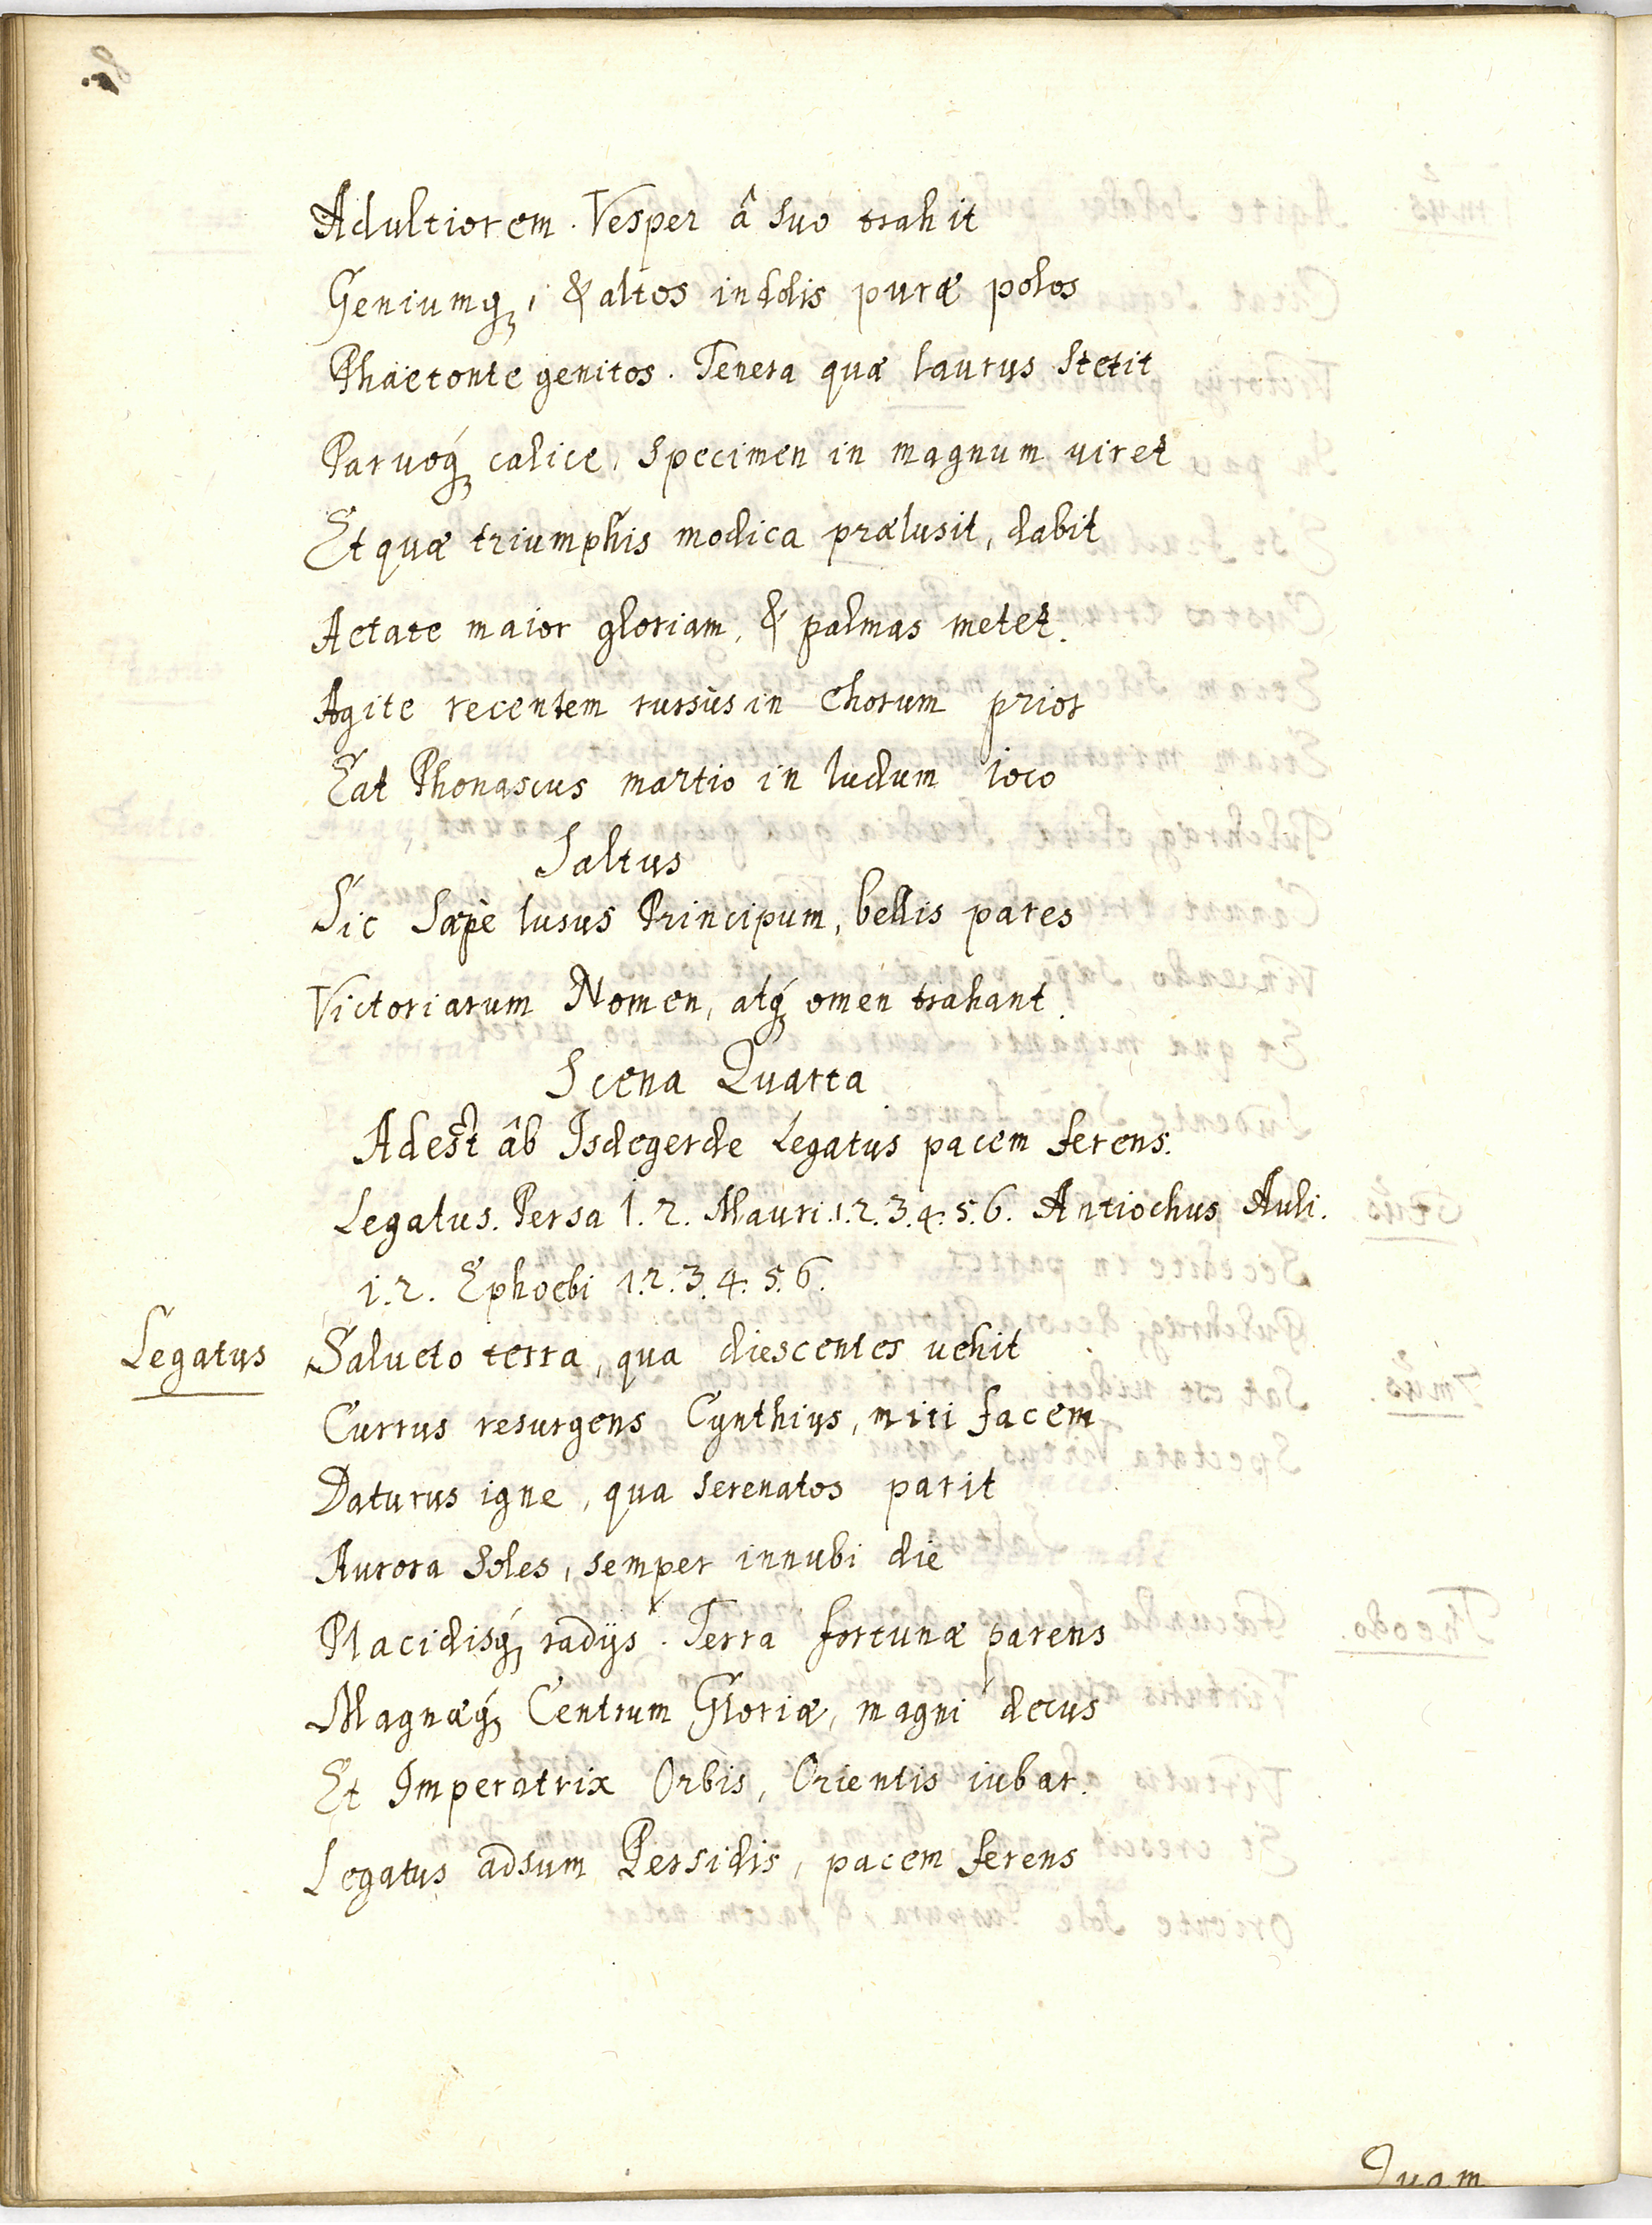 Adultiorem. Vesper â suo trahit
Geniumq́, & altos indolis puræ polos
Phaëtonte genitos. Tenera quæ laurus stetit
Paruoq́ calice, specimen in magnum viret
Et quæ triumphis modica prælusit, dabit
Aetate maior gloriam, & palmas metet.
Agite recentem rursùs in Chorum prior
Eat Phonascus martio in ludum ioco
Saltus
Sic sæpè lusus Principum, bellis pares
Victoriarum Nomen, atq́ omen trahant.
Scena Quarta
Adest âb Isdegerde Legatus pacem ferens.
Legatus. Persa 1. 2. Mauri. 1. 2. 3. 4. 5. 6. Antiochus Auli.
1. 2. Ephoebi 1. 2. 3. 4. 5. 6.
Legatus Salueto terra, qua diescentes uehit
Currus resurgens Cynthius, miti facem
Daturus igne, qua serenatos parit
Aurora soles, semper innubi die
Placidisq́ radijs. Terra fortunæ parens
Magnæq́ Centrum Gloriæ, magni decus
Et Imperatrix Orbis, Orientis iubar.
Legatus adsum Persidis, pacem ferens
Quam